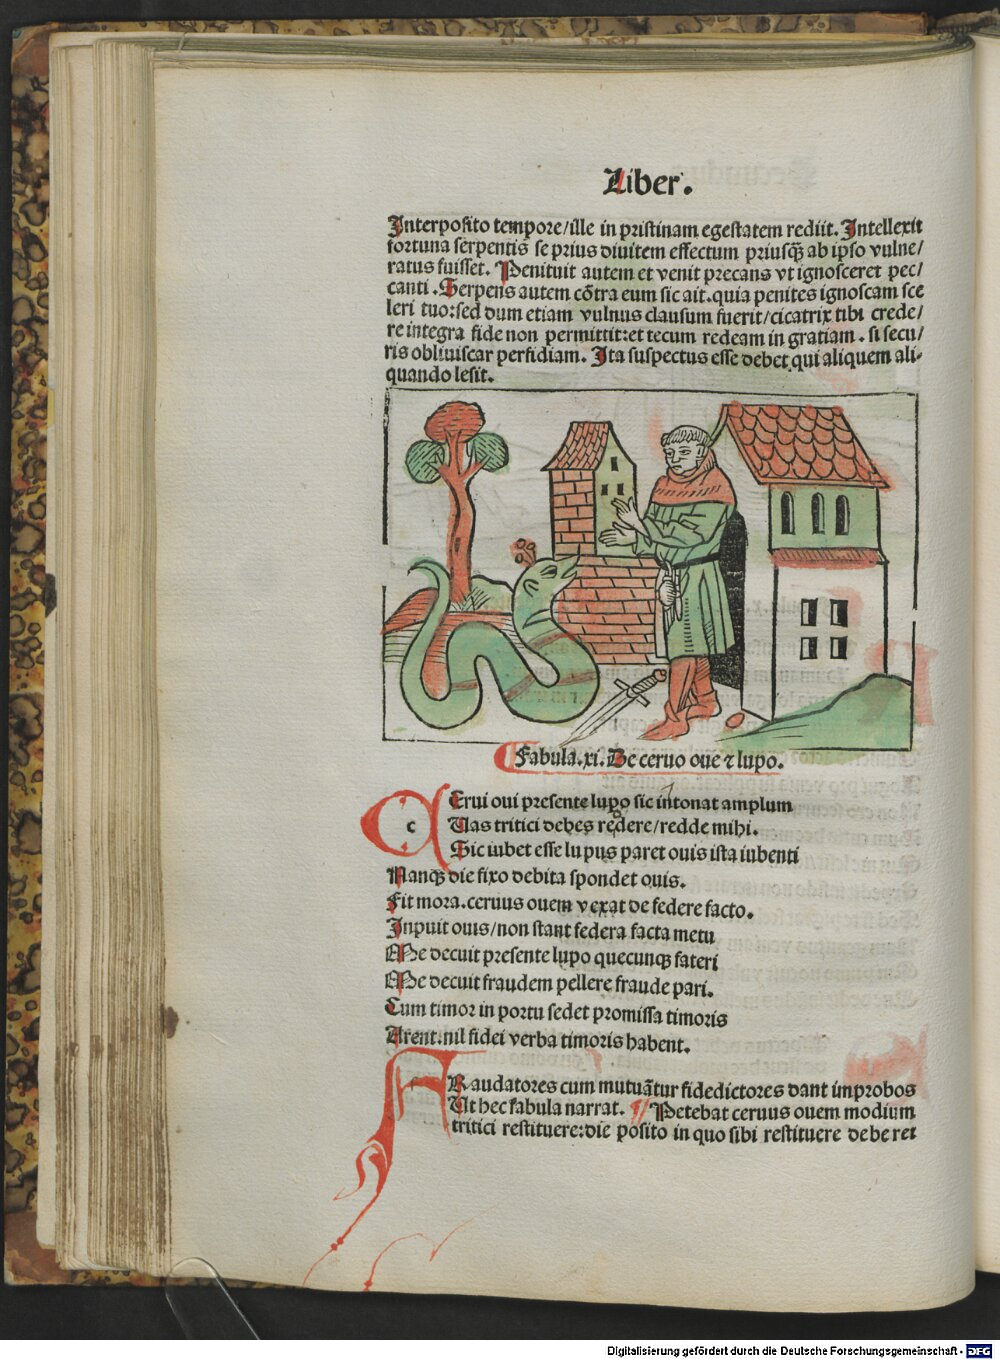 Liber.
Interposito tempore/ille in pristinam egestatem rediit. Intellexit
fortuna serpentis se prius diuitem effectum priusqꝫ ab ipso vulne/
ratus fuisset. Penituit autem et venit precans vt ignosceret pec/
canti. Serpens autem cõtra eum sic ait. quia penites ignoscam sce
leri tuo:sed dum etiam vulnus clausum fuerit/cicatrix tibi crede/
re integra fide non permittit:et tecum redeam in gratiam. si secu/
ris obliuiscar perfidiam. Ita suspectus esse debet qui aliquem ali-
quando lesit.
Fabula.xi. De ceruo oue ⁊ lupo.
c Erui oui presente lupo sic intonat amplum
Uas tritici debes reddere/redde mihi.
Sic iubet esse lupus paret ouis ista iubenti
Namqꝫ die fixo debita spondet ouis.
Fit mora.ceruus ouem vexat de federe facto.
Inpuit ouis/non stant federa facta metu
Me decuit presente lupo quecunqꝫ fateri
Me decuit fraudem pellere fraude pari.
Cum timor in portu sedet promissa timoris
Arent:nil fidei verba timoris habent.
FRaudatores cum mutuãtur fidedictores dant improbos
Ut hec fabula narrat. Petebat ceruus ouem modium
tritici restituere:die posito in quo sibi restituere deberet
Digitalisierung gefördert durch die Deutsche Forschungsgemeinschaft - DFG